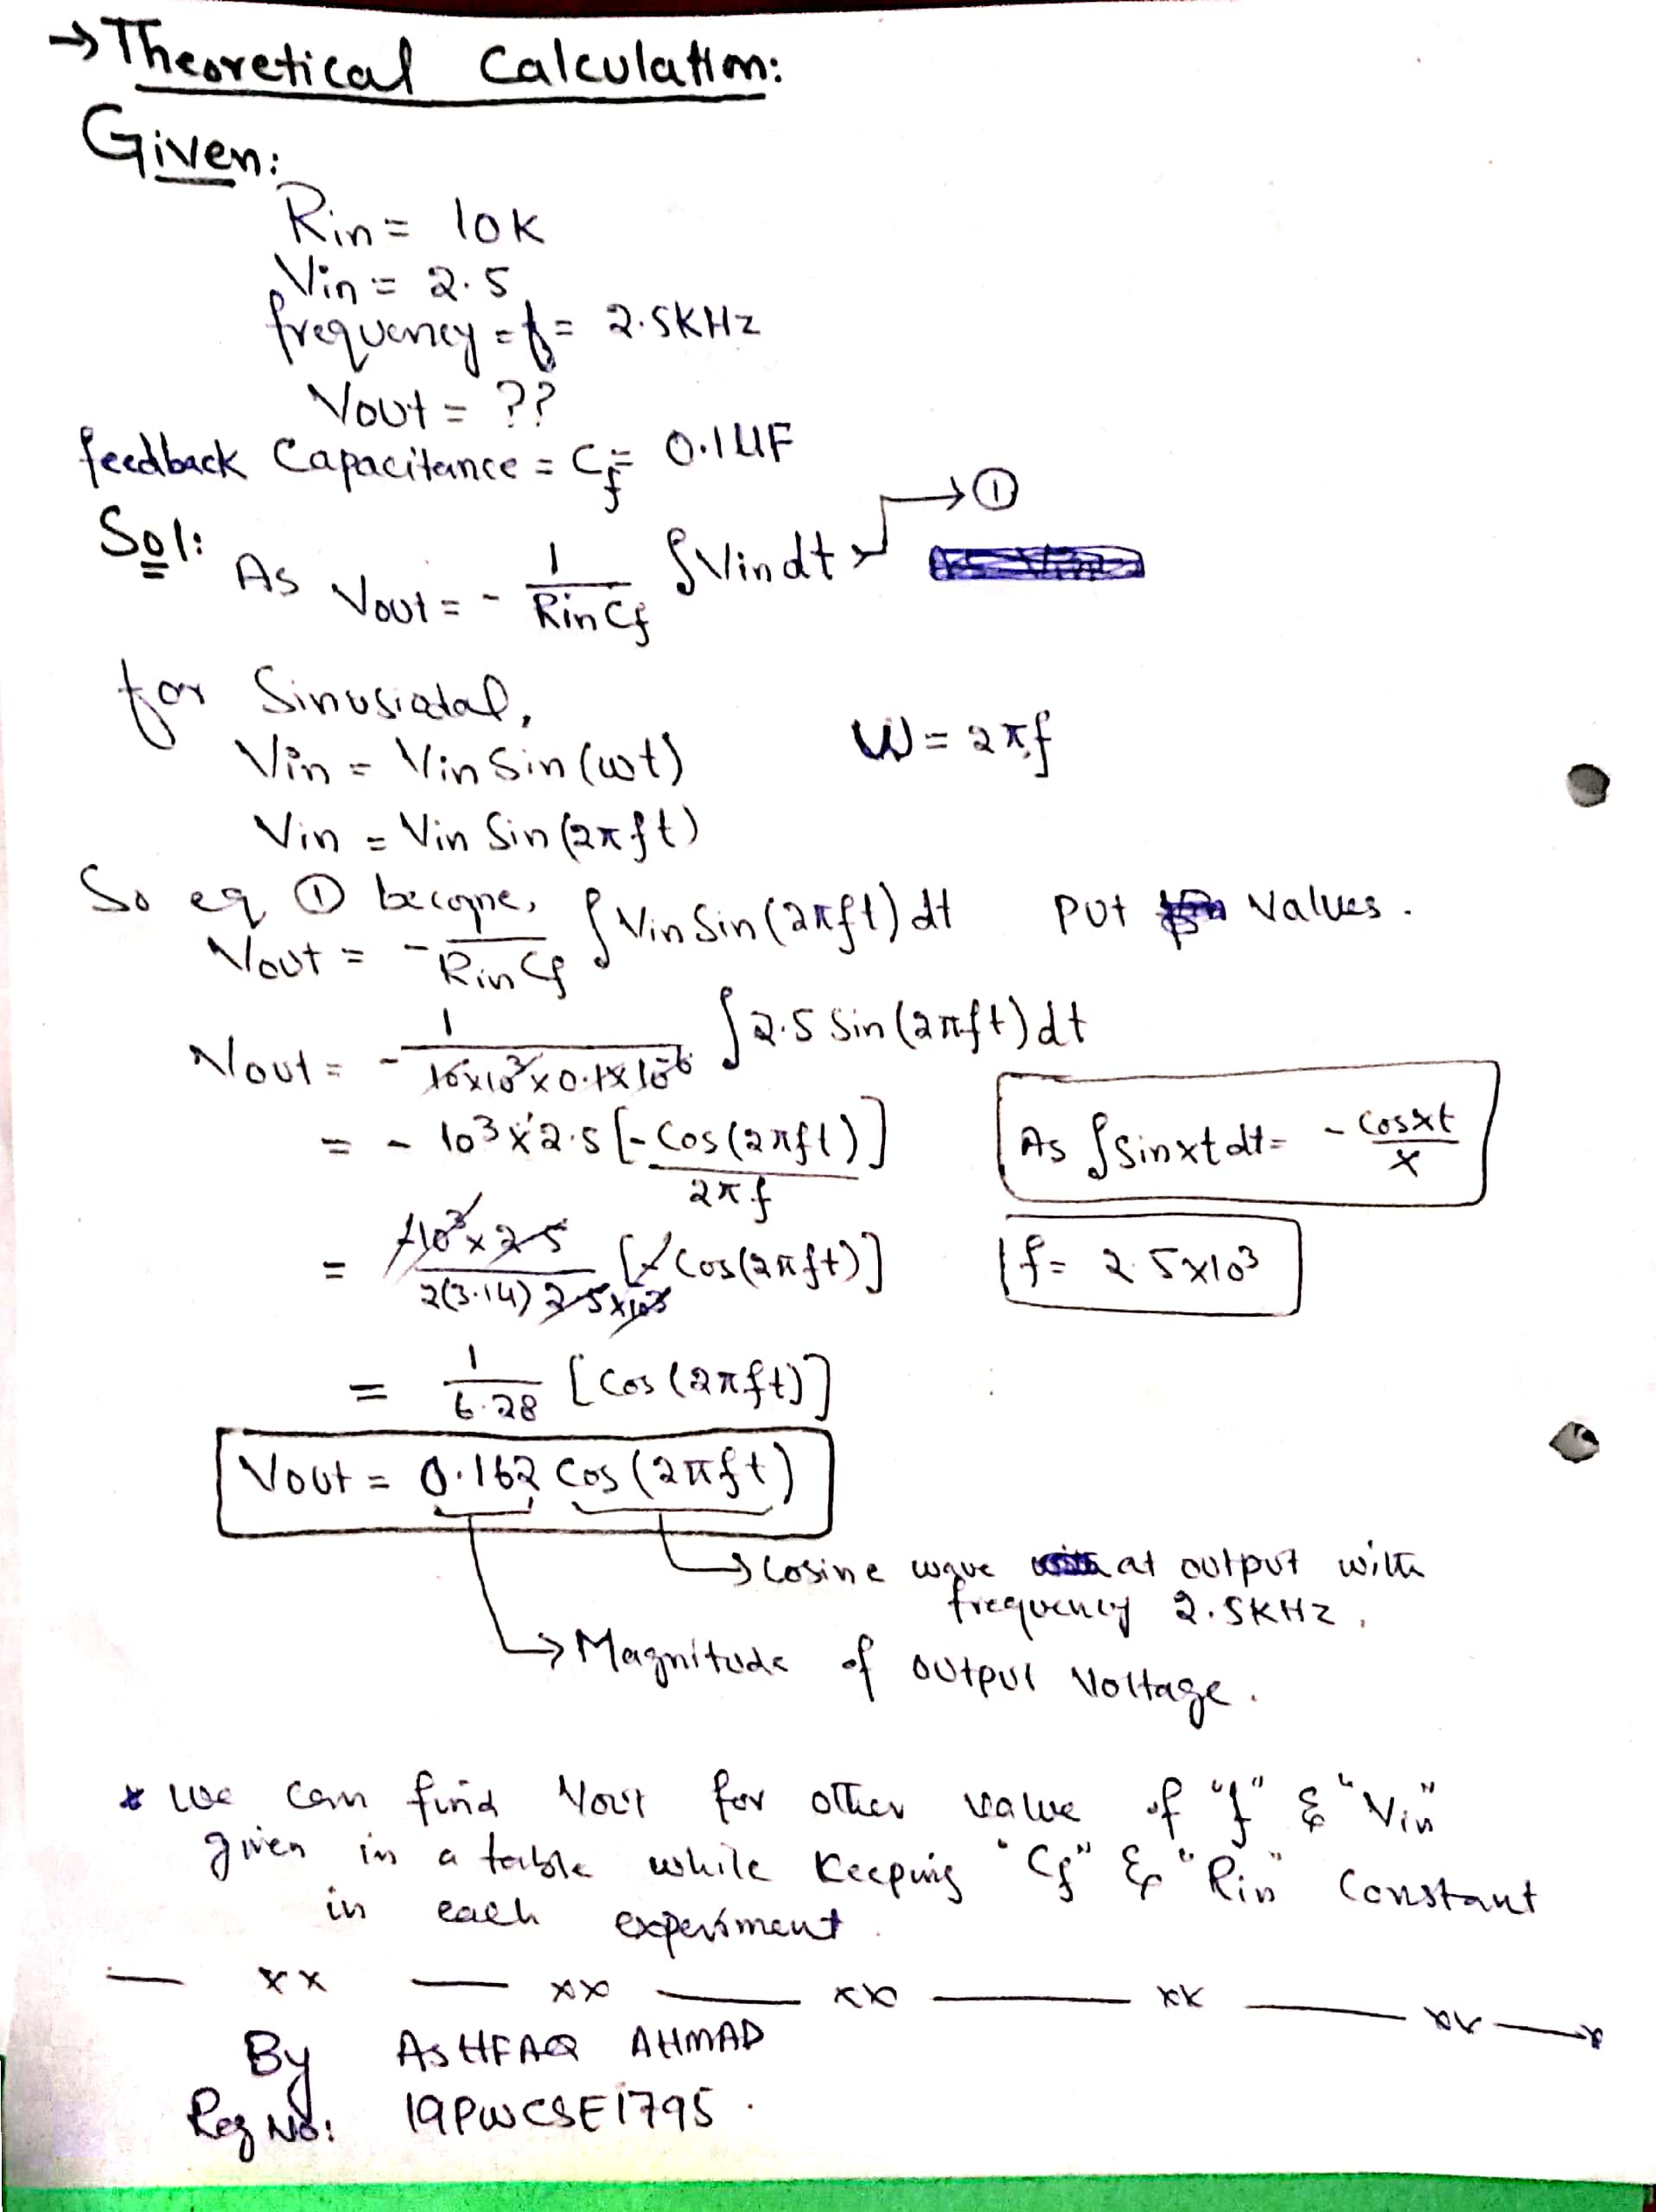 → Theoretical Calculation:
Given:
Rin = 10K
Vin = 2.5
frequency = f = 2.5KHz
Vout = ??
feedback Capacitance = Cf = 0.1UF
Sol:
As Vout = - 1/RinCf ∫Vin dt → ①
for Sinusiodal,
Vin = Vin Sin(wt) W = 2πf
Vin = Vin Sin(2πft)
So eq ① become,
Vout = - 1/RinCf ∫Vin Sin(2πft) dt Put Values.
Vout = - 1/10x10³x0.1x10⁻⁶ ∫2.5 Sin(2πft) dt
= - 10³ x 2.5 [-Cos(2πft)/2πf] As ∫Sinxt dt = - Cosxt/x
= -10³x2.5/2(3.14) 2.5x10³ [-Cos(2πft)] f = 2.5x10³
= 1/6.28 [Cos(2πft)]
Vout = 0.162 Cos(2πft)
→ Cosine wave at output with
frequency 2.5KHz.
→ Magnitude of output Voltage.
* We can find Vout for other value of "f" & "Vin"
given in a table while Keeping "Cf" & "Rin" Constant
in each experiment.
— xx — xx — xx — xx — xx —x
By ASHFAQ AHMAD
Reg No: 19PWCSE1795.